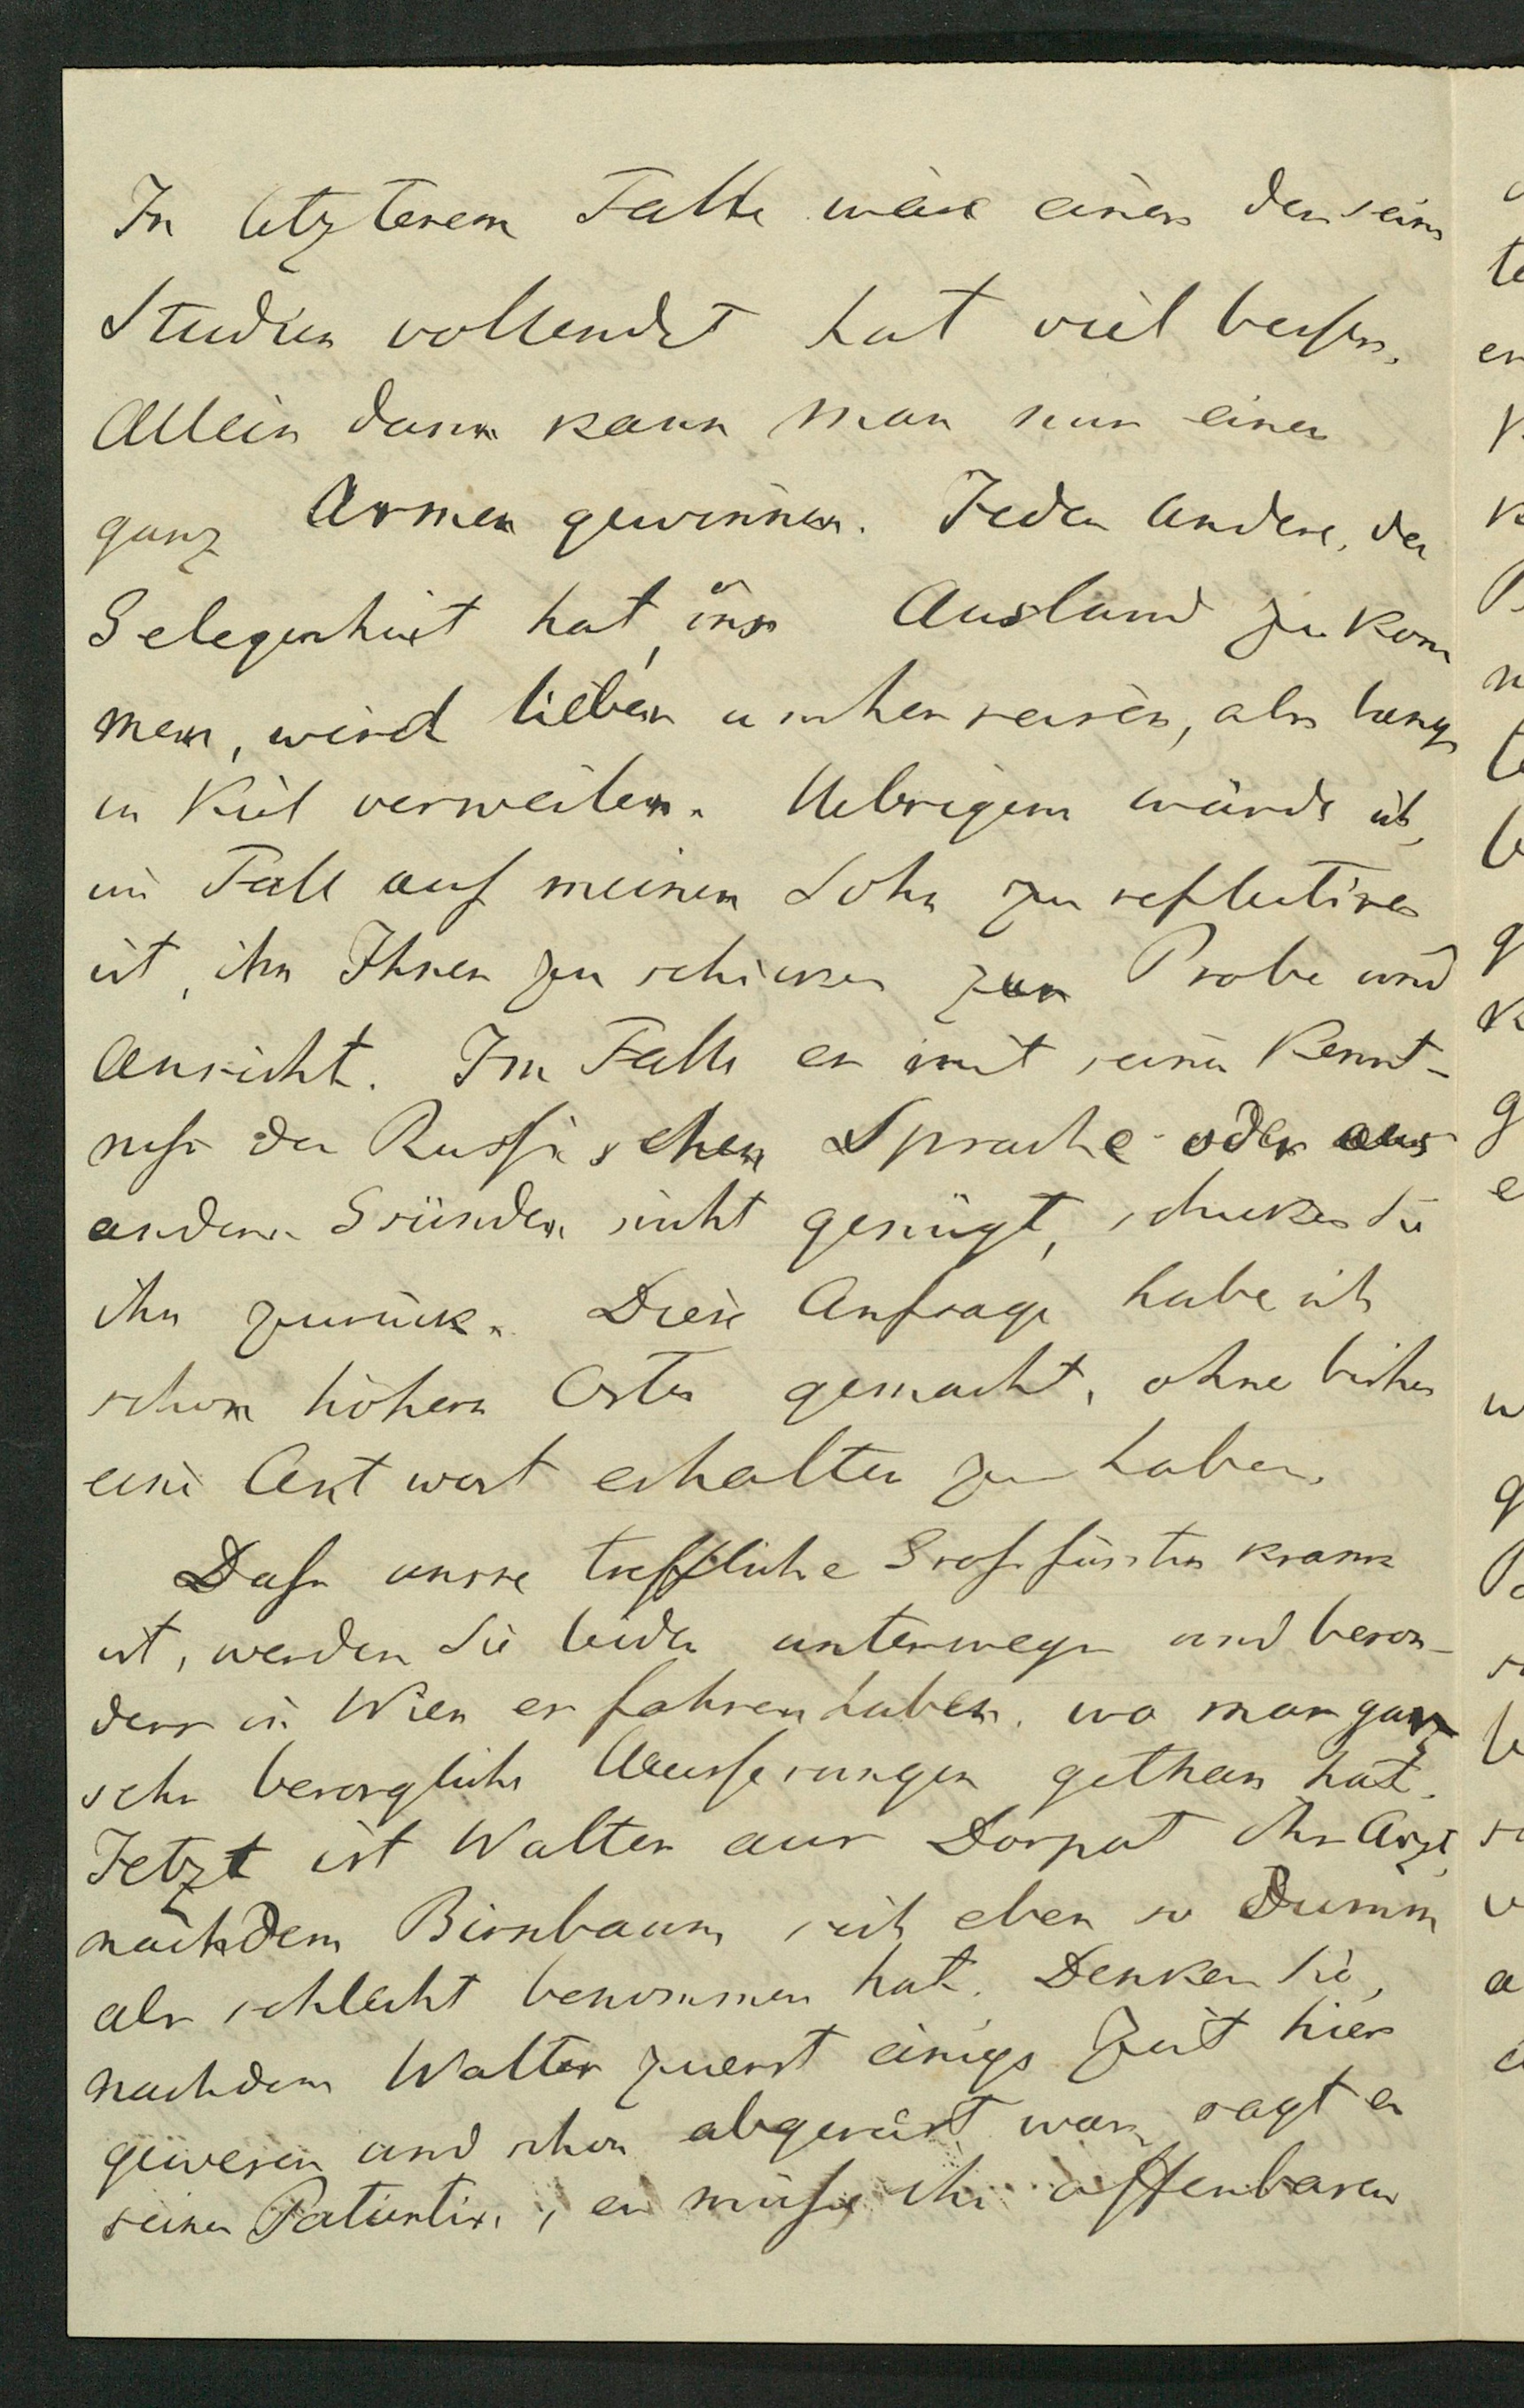 In letzterem Falle wäre einer der seine
Studien vollendet hat viel besser.
Allein dann kann man nur einen
ganz Armen gewinnen. Jeder Andere, der
Gelegenheit hat, ins Ausland zu kom
men, wird lieber umherreisen, als lange
in Kiel verweilen. Uebrigens würde ich,
im Fall auf meinen Sohn zu reflectiren
ist, ihn Ihnen zu schicken zur Probe und
Ansicht. Im Falle er mit seiner Kennt-
niss der Russischen Sprache oder aus
andern Gründen nicht genügt, schicken Sie
ihn zurück. Diese Anfrage habe ich
schon höhern Ortes gemacht, ohne bisher
eine Antwort erhalten zu haben.
Dass unsre treffliche Grossfürstin krank
ist, werden Sie leider unterwegs und beson-
ders in Wien erfahren haben, wo man ganz
sehr besorgliche Aeusserungen gethan hat.
Jetzt ist Walter aus Dorpat ihr Arzt,
nachdem Birnbaum sich eben so dumm
als schlecht benommen hat. Denken Sie,
nachdem Walter zuerst einige Zeit hier
gewesen und schon abgereist war, sagt er
seiner Patientin, er müsse ihr offenbaren